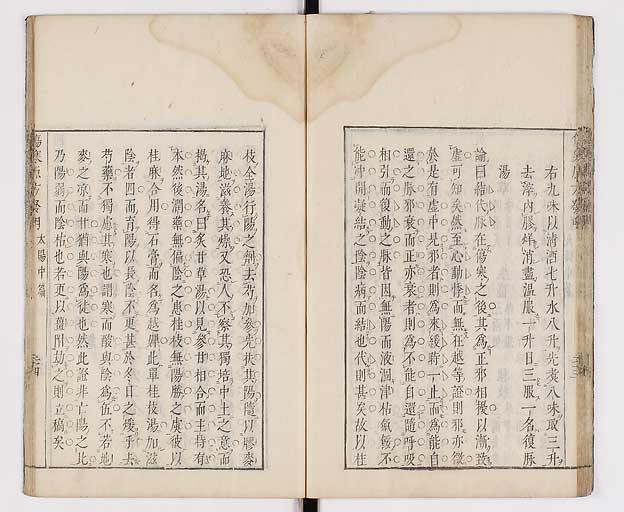 右九味以清酒七升水八升先煑八味取三升
去滓內膠烊消盡溫服一升日三服一名復脉
湯
論曰結代脉在傷寒之後其為正邪相摟以漸致
虛可知矣然至心動悸而無狂越等證則邪亦微
矣是有虛中見邪者則為來緩時一止而為能自
還之脉邪衰而正亦衰者則為不能自還隨呼吸
相引而復動之脉皆因無陽而液涸津枯氣餒不
能冲開凝結之陰陰病而結也代則甚矣故以桂
枝全湯行陽之劑去芍加參先扶其陽隨以膠麥
麻地滋養其燥又恐人不察其獨培中土之意而
揭其湯名曰炙甘草湯以見參甘相合而主持有
本然後潤藥無偏陰之患桂枝無陽勝之虞彼以
桂麻合用得石膏而名為越婢此單桂枝湯加滋
陰者四而育陽以長陰不更甚於冬日之煖乎去
芍藥不獨慮其寒也謂寒而酸與陰為伍不若地
麥之凉而甘猶與陽為徒也然此證非亡陽之比
乃陽弱而陰枯也若更以薑附劫之則立槁矣
太陽中篇